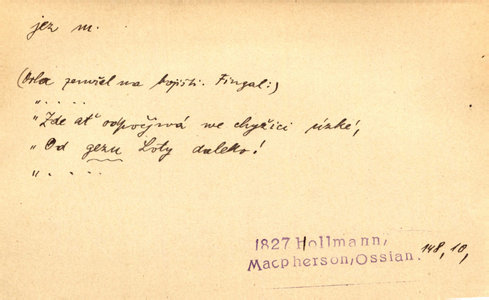 jez m.
(Orla zemřel na bojišti. Fingal:)
„. . . .
„Zde ať odpočívá we chyžici úzké,
„Od gezu Loty daleko!
„. . . . .
1827 Hollmann,
Macpherson, Ossian. 148, 10,